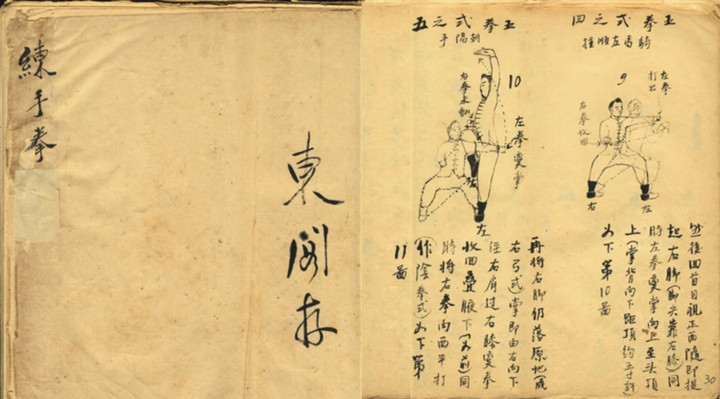 練手拳
東閣存
五之式拳玉
手陽刹
10
右拳未動
左拳變掌
左
左
再将右脚仍落原地(成
右弓式掌即由右向下
徑右肩过右膝变拳
收回叠腋下(如前)同
時将右拳向西平打
(作陰拳式)如下第
11啚
四之式拳玉
捶湘左馬騎
9
左拳打出
右拳收回
右
左
然後回首目視正西随即提
起右脚(脚尖靠右膝)同
時左拳变掌向上至头頂
上(掌背向下距頂約五寸許)
如下第10啚
30